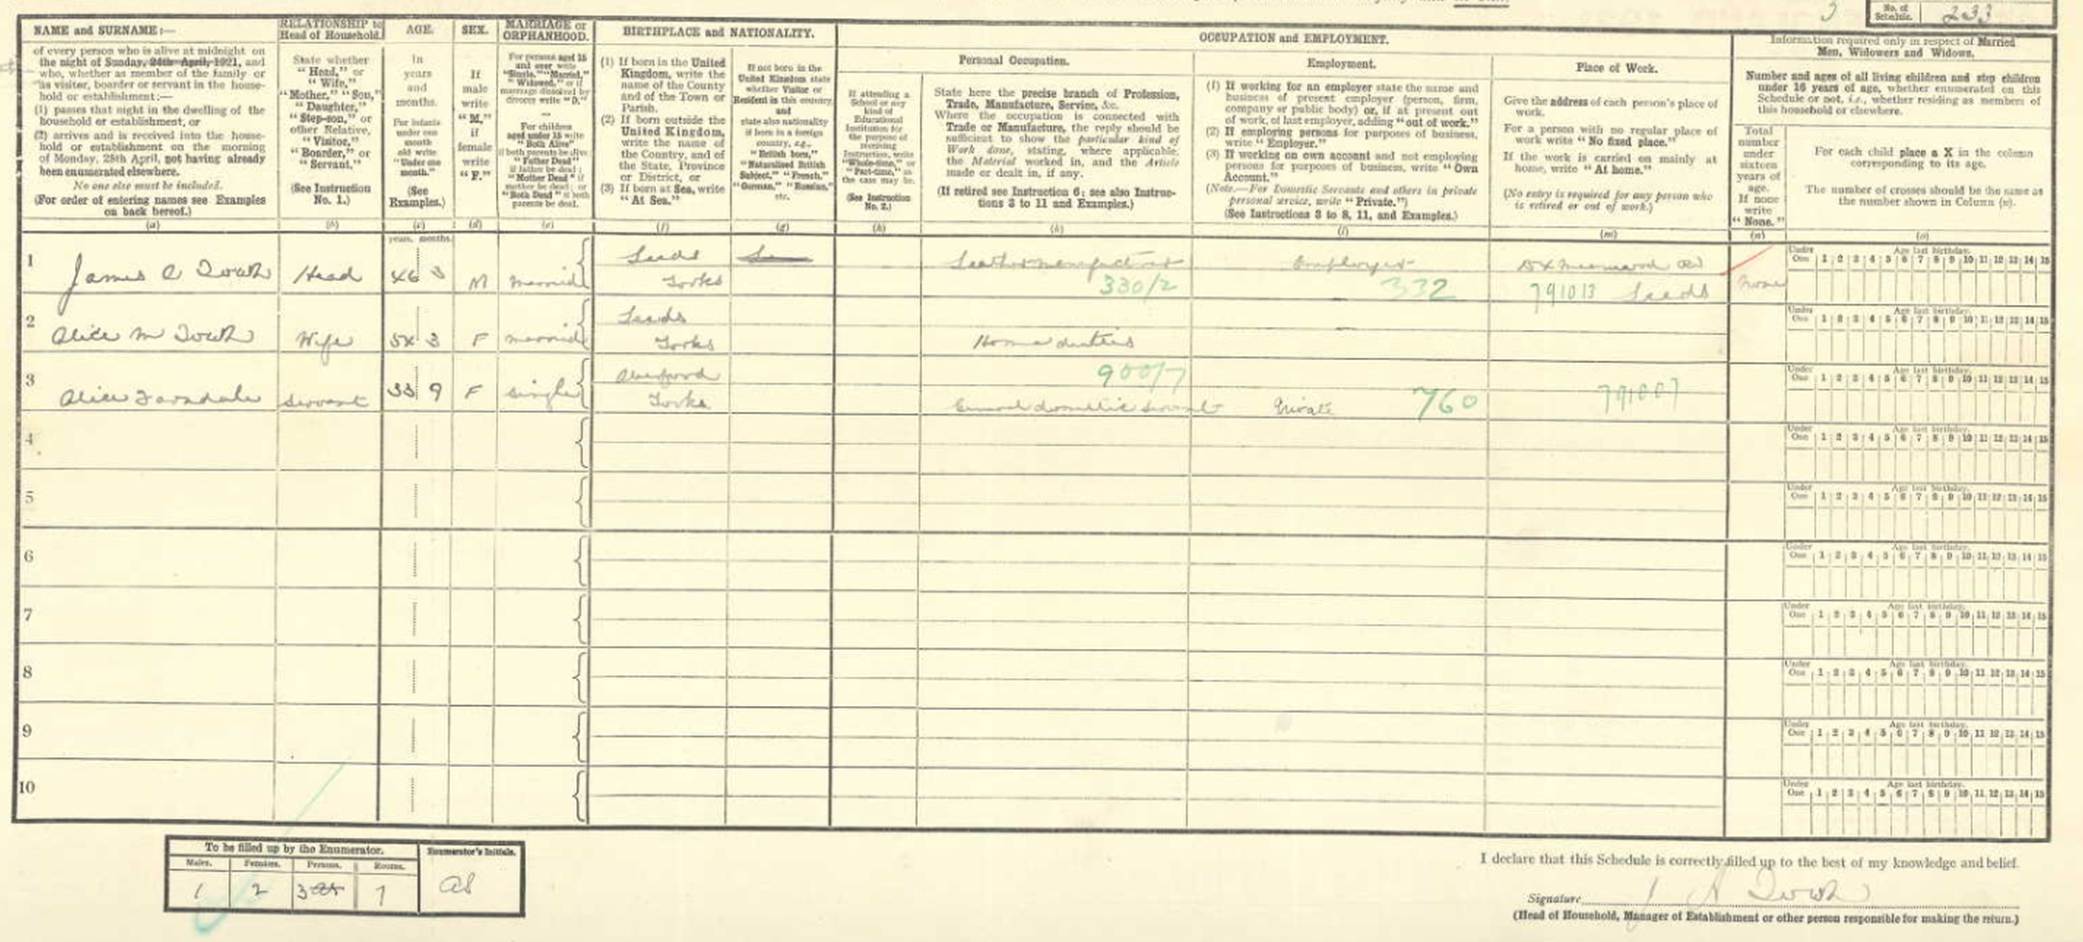 No. of Schedule. 233
NAME and SURNAME:—
of every person who is alive at midnight on
the night of Sunday, 24th April, 1921, and
who, whether as member of the family or
as visitor, boarder or servant in the house-
hold or establishment:—
(1) passes that night in the dwelling of the
household or establishment, or
(2) arrives and is received into the house-
hold or establishment on the morning
of Monday, 25th April, not having already
been enumerated elsewhere.
No one else must be included.
(For order of entering names see Examples
on back hereof.)
(a)
RELATIONSHIP to
Head of Household.
State whether
"Head," or
"Wife,"
"Mother," "Son,"
"Daughter,"
"Step-son," or
other Relative,
"Visitor,"
"Boarder," or
"Servant."
(See Instruction
No. 1.)
(b)
AGE.
In
years
and
months.
For infants
under one
month
old write
"Under one
month."
(See
Examples.)
(c)
SEX.
If
male
write
"M."
if
female
write
"F."
(d)
MARRIAGE or
ORPHANHOOD.
For persons aged 15
and over write
"Single," "Married,"
"Widowed," or if
marriage dissolved by
divorce write "D."
For children
aged under 15 write
"Both Alive"
if both parents be alive;
"Father Dead" if
father be dead;
"Mother Dead" if
mother be dead; or
"Both Dead" if both
parents be dead.
(e)
BIRTHPLACE and NATIONALITY.
(1) If born in the United
Kingdom, write the
name of the County
and of the Town or
Parish.
(2) If born outside the
United Kingdom,
write the name of
the Country, and of
the State, Province
or District, or
(3) If born at Sea, write
"At Sea."
(f)
If not born in the
United Kingdom state
whether Visitor or
Resident in this country,
and
state also nationality
if born in a foreign
country, e.g.,
"British born,"
"Naturalised British
Subject," "French,"
"German," "Russian,"
etc.
(g)
OCCUPATION and EMPLOYMENT.
Personal Occupation.
If attending a
School or any
kind of
Educational
Institution for
the purpose of
receiving
Instruction, write
"Whole-time," or
"Part-time," as
the case may be.
(See Instruction
No. 2.)
(h)
State here the precise branch of Profession,
Trade, Manufacture, Service, &c.
Where the occupation is connected with
Trade or Manufacture, the reply should be
sufficient to show the particular kind of
Work done, stating, where applicable,
the Material worked in, and the Article
made or dealt in, if any.
(If retired see Instruction 6; see also Instruc-
tions 3 to 11 and Examples.)
(k)
Employment.
(1) If working for an employer state the name and
business of present employer (person, firm,
company or public body) or, if at present out
of work, of last employer, adding "out of work."
(2) If employing persons for purposes of business,
write "Employer."
(3) If working on own account and not employing
persons for purposes of business, write "Own
Account."
(Note.—For Domestic Servants and others in private
personal service, write "Private.")
(See Instructions 3 to 8, 11, and Examples.)
(l)
Place of Work.
Give the address of each person's place of
work.
For a person with no regular place of
work write "No fixed place."
If the work is carried on mainly at
home, write "At home."
(No entry is required for any person who
is retired or out of work.)
(m)
Information required only in respect of Married
Men, Widowers and Widows.
Number and ages of all living children and step children
under 16 years of age, whether enumerated on this
Schedule or not, i.e., whether residing as members of
this household or elsewhere.
Total
number
under
sixteen
years of
age.
If none
write
"None."
(n)
For each child place a X in the column
corresponding to its age.
The number of crosses should be the same as
the number shown in Column (n).
(o)
years. months.
1 James Head M married Leeds Yorks Leather manufacturer 330/2 Employer 332 791013 Leeds None
2 Alice M Wife F married Leeds Yorks Home duties
3 Alice Farndale Servant 33 9 F single Aberford Yorks 900/7 General domestic servant Private 760 791007
4
5
6
7
8
9
10
Under One 1 2 3 4 5 6 7 8 9 10 11 12 13 14 15
Age last birthday.
To be filled up by the Enumerator.
Males. Females. Persons. Rooms.
1 2 3 7
Enumerator's Initials.
I declare that this Schedule is correctly filled up to the best of my knowledge and belief.
Signature
(Head of Household, Manager of Establishment or other person responsible for making the return.)